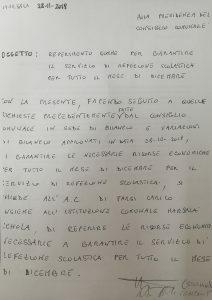 MARSALA 28-11-2018
ALLA PRESIDENZA DEL
CONSIGLIO COMUNALE
OGGETTO: REPERIMENTO SOMME PER GARANTIRE
IL SERVIZIO DI REFEZIONE SCOLASTICA
PER TUTTO IL MESE DI DICEMBRE
CON LA PRESENTE, FACENDO SEGUITO A QUELLE
RICHIESTE PRECEDENTEMENTE FATTE DAL CONSIGLIO
COMUNALE IN SEDE DI BILANCIO E VARIAZIONI
DI BILANCIO APPROVATI IN DATA
DI GARANTIRE LE NECESSARIE RISORSE ECONOMICHE
PER TUTTO IL MESE DI DICEMBRE PER IL
SERVIZIO DI REFEZIONE SCOLASTICA, SI
CHIEDE ALL'A.C. DI FARSI CARICO
INSIEME ALL'ISTITUZIONE COMUNALE MARSALA
SCHOLA, DI REPERIRE LE RISORSE ECONOMICHE
NECESSARIE A GARANTIRE IL SERVIZIO DI
REFEZIONE SCOLASTICA PER TUTTO IL MESE
DI DICEMBRE.